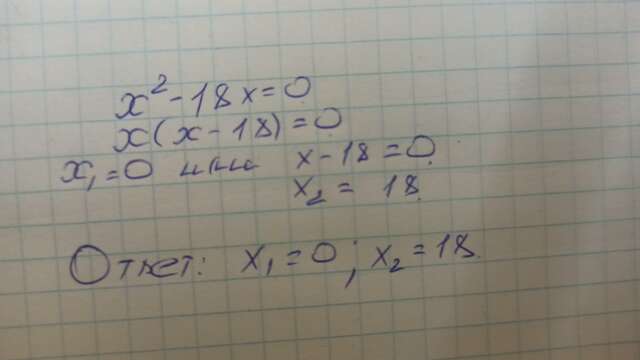 x² - 18x = 0
x(x - 18) = 0
x₁ = 0 или x - 18 = 0
x₂ = 18
Ответ: x₁ = 0; x₂ = 18